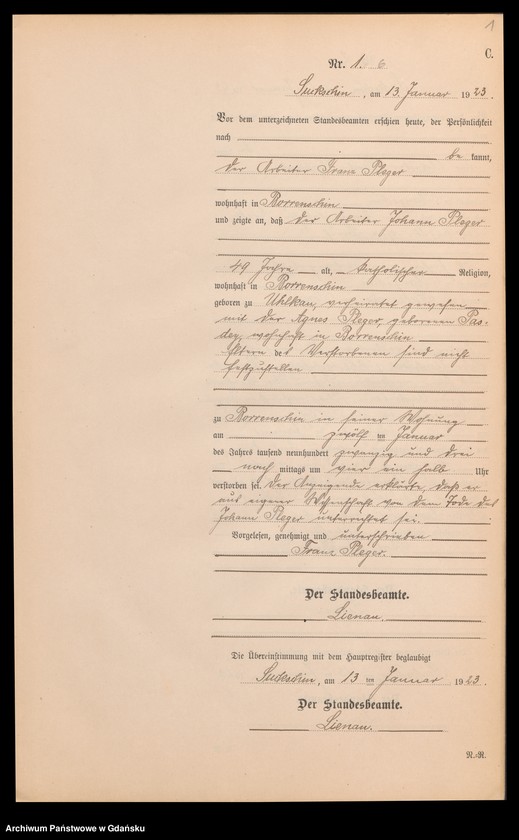 1
C.
Nr. 1.
Suckschin, am 13. Januar 1923.
Vor dem unterzeichneten Standesbeamten erschien heute, der Persönlichkeit
nach
be kannt,
der Arbeiter Franz Pleger
wohnhaft in Borrenschin
und zeigte an, daß der Arbeiter Johann Pleger
49 Jahre alt, katholischer Religion,
wohnhaft in Borrenschin
geboren zu Uhlkau, verheiratet gewesen
mit der Agnes Pleger, geborenen Pas-
dey, wohnhaft in Borrenschin
Eltern des Verstorbenen sind nicht
festzustellen
zu Borrenschin in seiner Wohnung
am zwölf ten Januar
des Jahres tausend neunhundert zwanzig und drei
nach mittags um vier ein halb Uhr
verstorben sei. Der Anzeigende erklärte, daß er
aus eigener Wissenschaft von dem Tode des
Johann Pleger unterrichtet sei.
Vorgelesen, genehmigt und unterschrieben
Franz Pleger.
Der Standesbeamte.
Lienau.
Die Übereinstimmung mit dem Hauptregister beglaubigt
Suckschin, am 13 ten Januar 1923.
Der Standesbeamte.
Lienau.
N.-R.
Archiwum Państwowe w Gdańsku